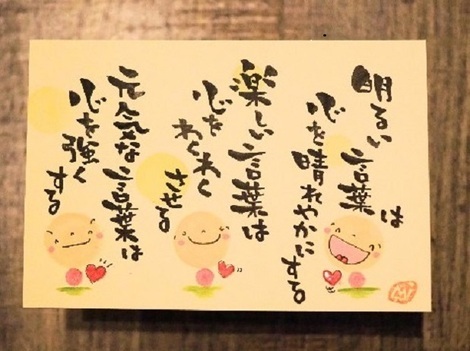 明るい言葉は
心を晴れやかにする
楽しい言葉は
心を
わくわく
させる
元気な言葉は
心を強く
する